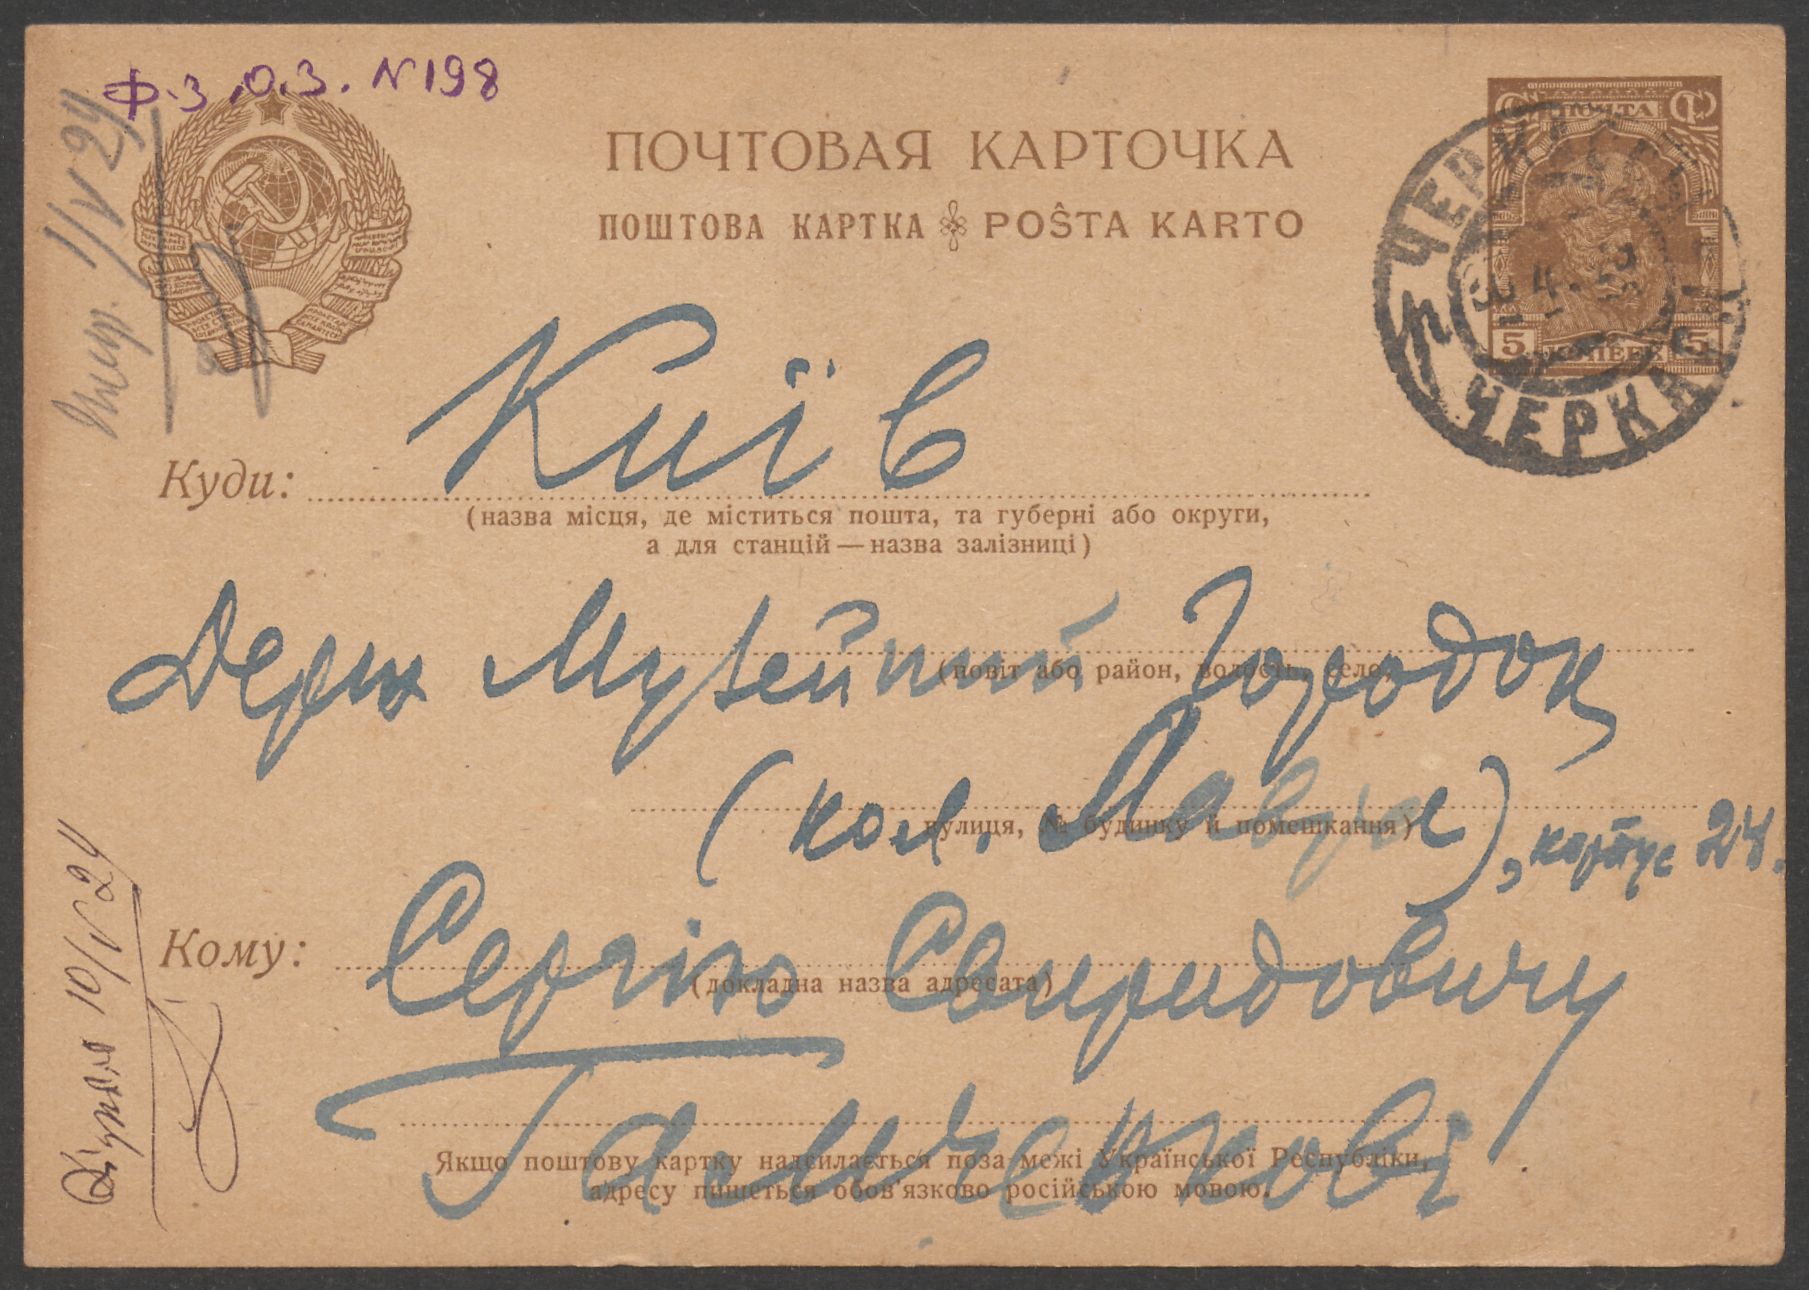 Ф.З.О.З. №198
ПОЧТОВАЯ КАРТОЧКА
ПОШТОВА КАРТКА POŜTA KARTO
ПОЧТА
5 КОПЕЕК 5
ЧЕРКА
Куди: Київ
(назва місця, де міститься пошта, та губерні або округи,
а для станцій — назва залізниці)
Держ Музейний Городок
(повіт або район, волость, село,
(кол. Лавра), корпус 24.
вулиця, № будинку й помешкання)
Кому: Сергію Свиридовичу
(докладна назва адресата)
Гамченкові
Якщо поштову картку надсилається поза межі Української Республіки,
адресу пишеться обов'язково російською мовою.